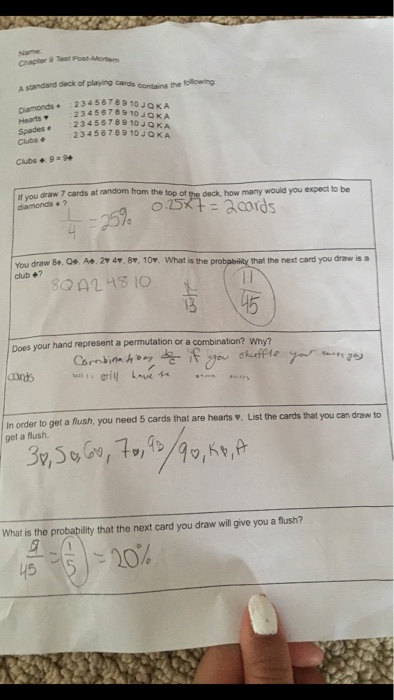 Name:
Chapter 9 Test Post-Mortem
A standard deck of playing cards contains the following
Diamonds ♦ : 2 3 4 5 6 7 8 9 10 J Q K A
Hearts ♥ : 2 3 4 5 6 7 8 9 10 J Q K A
Spades ♠ : 2 3 4 5 6 7 8 9 10 J Q K A
Clubs ♣ : 2 3 4 5 6 7 8 9 10 J Q K A
Clubs ♣, 9 = 9♣
If you draw 7 cards at random from the top of the deck, how many would you expect to be
diamonds ♦ ?
1/4 = 25% 0.25x7 = 2 cards
You draw 8♠, Q♣, A♠, 2♥ 4♥, 8♥, 10♥. What is the probability that the next card you draw is a
club ♣?
8 Q A 2 4 8 10
13
11/45
Does your hand represent a permutation or a combination? Why?
Combination b/c if you shuffle your
cards still have
In order to get a flush, you need 5 cards that are hearts ♥. List the cards that you can draw to
get a flush.
3♥, 5♥, 6♥, 7♥, 9♥/9♥, K♥, A
What is the probability that the next card you draw will give you a flush?
9/45 = 1/5 = 20%